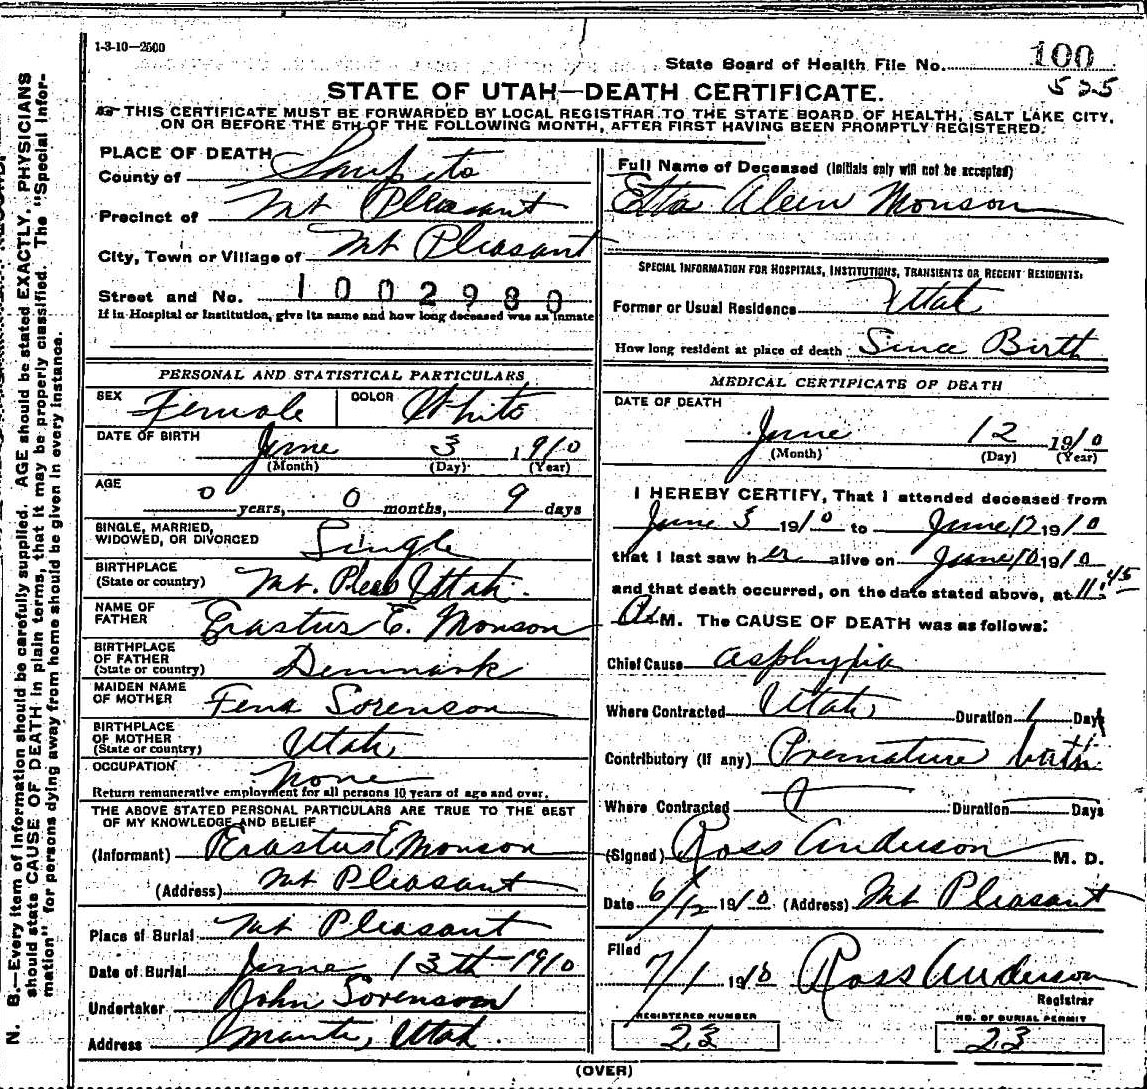 1-3-10—2500
State Board of Health File No. 100
525
STATE OF UTAH—DEATH CERTIFICATE.
THIS CERTIFICATE MUST BE FORWARDED BY LOCAL REGISTRAR TO THE STATE BOARD OF HEALTH, SALT LAKE CITY,
ON OR BEFORE THE 5TH OF THE FOLLOWING MONTH, AFTER FIRST HAVING BEEN PROMPTLY REGISTERED.
PLACE OF DEATH
County of Sanpete
Precinct of Mt Pleasant
City, Town or Village of Mt Pleasant
Street and No. 1002980
If in Hospital or Institution, give its name and how long deceased was as Inmate
Full Name of Deceased (Initials only will not be accepted)
Etta Aleen Monson
SPECIAL INFORMATION FOR HOSPITALS, INSTITUTIONS, TRANSIENTS OR RECENT RESIDENTS:
Former or Usual Residence Utah
How long resident at place of death Since Birth
PERSONAL AND STATISTICAL PARTICULARS
SEX Female COLOR White
DATE OF BIRTH June 3 1910
(Month) (Day) (Year)
AGE 0 years, 0 months, 9 days
SINGLE, MARRIED,
WIDOWED, OR DIVORCED Single
BIRTHPLACE
(State or country) Mt. Pleas Utah.
NAME OF
FATHER Erastus E. Monson
BIRTHPLACE
OF FATHER
(State or country) Denmark
MAIDEN NAME
OF MOTHER Fena Sorenson
BIRTHPLACE
OF MOTHER
(State or country) Utah
OCCUPATION None
Return remunerative employment for all persons 10 years of age and over.
THE ABOVE STATED PERSONAL PARTICULARS ARE TRUE TO THE BEST
OF MY KNOWLEDGE AND BELIEF
(Informant) Erastus E Monson
(Address) Mt Pleasant
Place of Burial Mt Pleasant
Date of Burial June 13th 1910
Undertaker John Sorenson
Address Manti, Utah.
MEDICAL CERTIFICATE OF DEATH
DATE OF DEATH
June 12 1910
(Month) (Day) (Year)
I HEREBY CERTIFY, That I attended deceased from
June 3 1910 to June 12 1910
that I last saw her alive on June 10 1910
and that death occurred, on the date stated above, at 11:45
A M. The CAUSE OF DEATH was as follows:
Chief Cause Asphyxia
Where Contracted Utah Duration 1 Days
Contributory (If any) Premature birth
Where Contracted Duration Days
(Signed) Ross Anderson M. D.
Date 6/12 1910 (Address) Mt Pleasant
Filed
7/1 1910 Ross Anderson
Registrar
REGISTERED NUMBER
23
NO. OF BURIAL PERMIT
23
(OVER)
N. B.—Every item of information should be carefully supplied. AGE should be stated EXACTLY. PHYSICIANS
should state CAUSE OF DEATH in plain terms, that it may be properly classified. The "Special Infor-
mation" for persons dying away from home should be given in every instance.